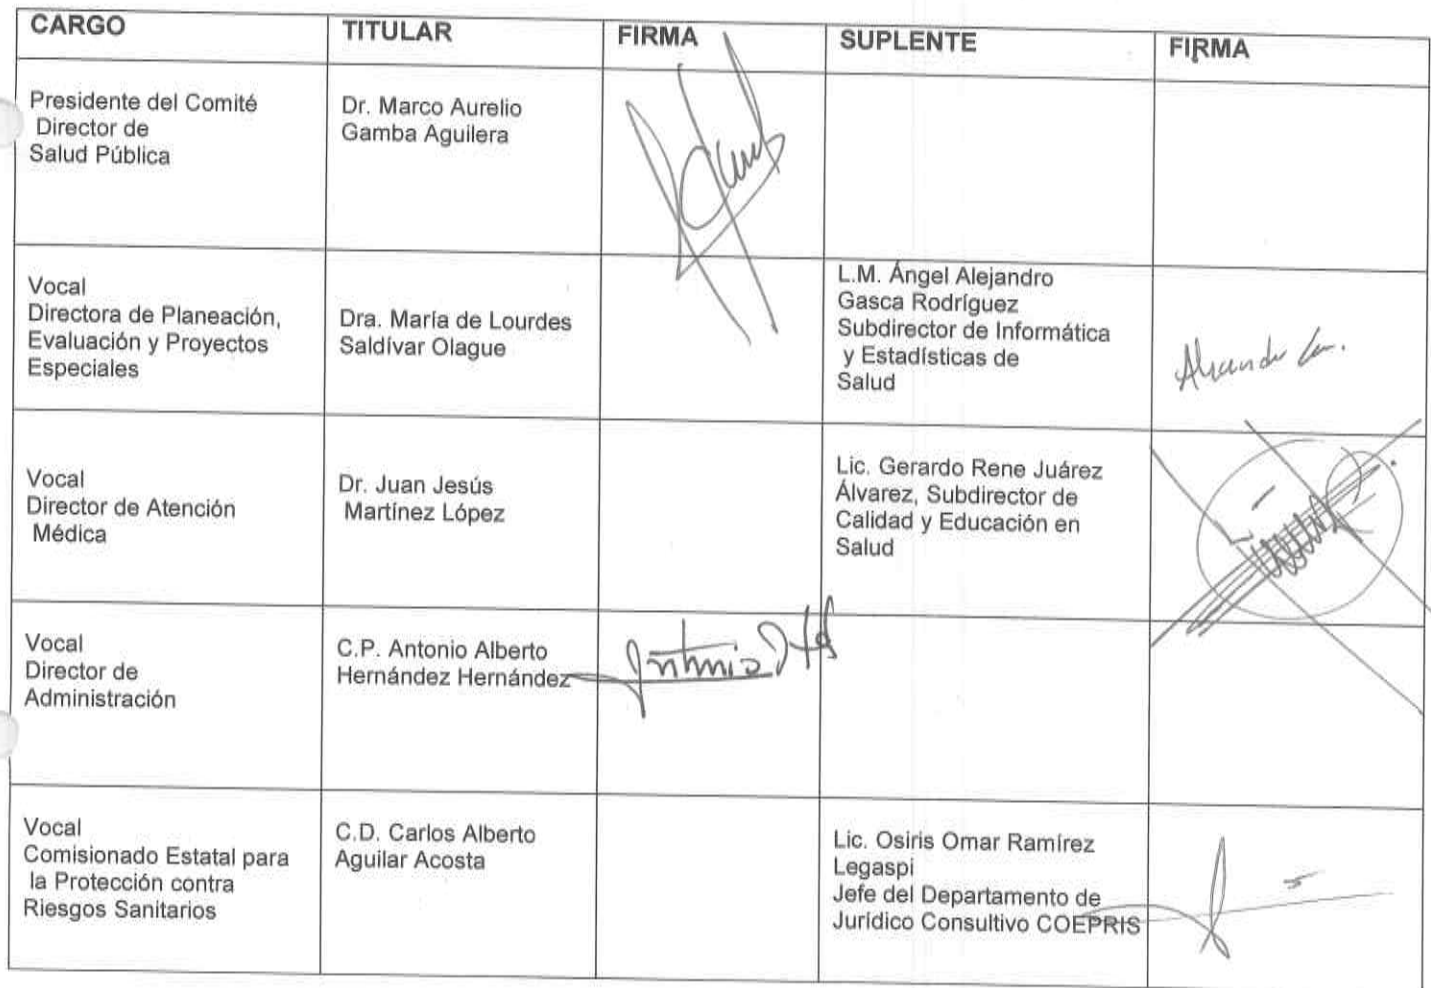 CARGO
TITULAR
FIRMA
SUPLENTE
FIRMA
Presidente del Comité
Director de
Salud Pública
Dr. Marco Aurelio
Gamba Aguilera
Vocal
Directora de Planeación,
Evaluación y Proyectos
Especiales
Dra. María de Lourdes
Saldívar Olague
L.M. Ángel Alejandro
Gasca Rodríguez
Subdirector de Informática
y Estadísticas de
Salud
Vocal
Director de Atención
Médica
Dr. Juan Jesús
Martínez López
Lic. Gerardo Rene Juárez
Álvarez, Subdirector de
Calidad y Educación en
Salud
Vocal
Director de
Administración
C.P. Antonio Alberto
Hernández Hernández
Antonio
Vocal
Comisionado Estatal para
la Protección contra
Riesgos Sanitarios
C.D. Carlos Alberto
Aguilar Acosta
Lic. Osiris Omar Ramírez
Legaspi
Jefe del Departamento de
Jurídico Consultivo COEPRIS